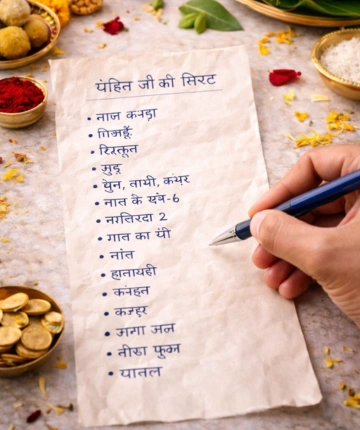 पंहित जी की सिरट
नाज कनड़ा
गिअहूँ
रिस्कून
मुड्
चून, तायी, कंथर
नात के खंब-6
नरतिरदा 2
गात का यी
नांत
हातायही
कंनहत
कजहर
जगा जल
नीरा फुल
यातल